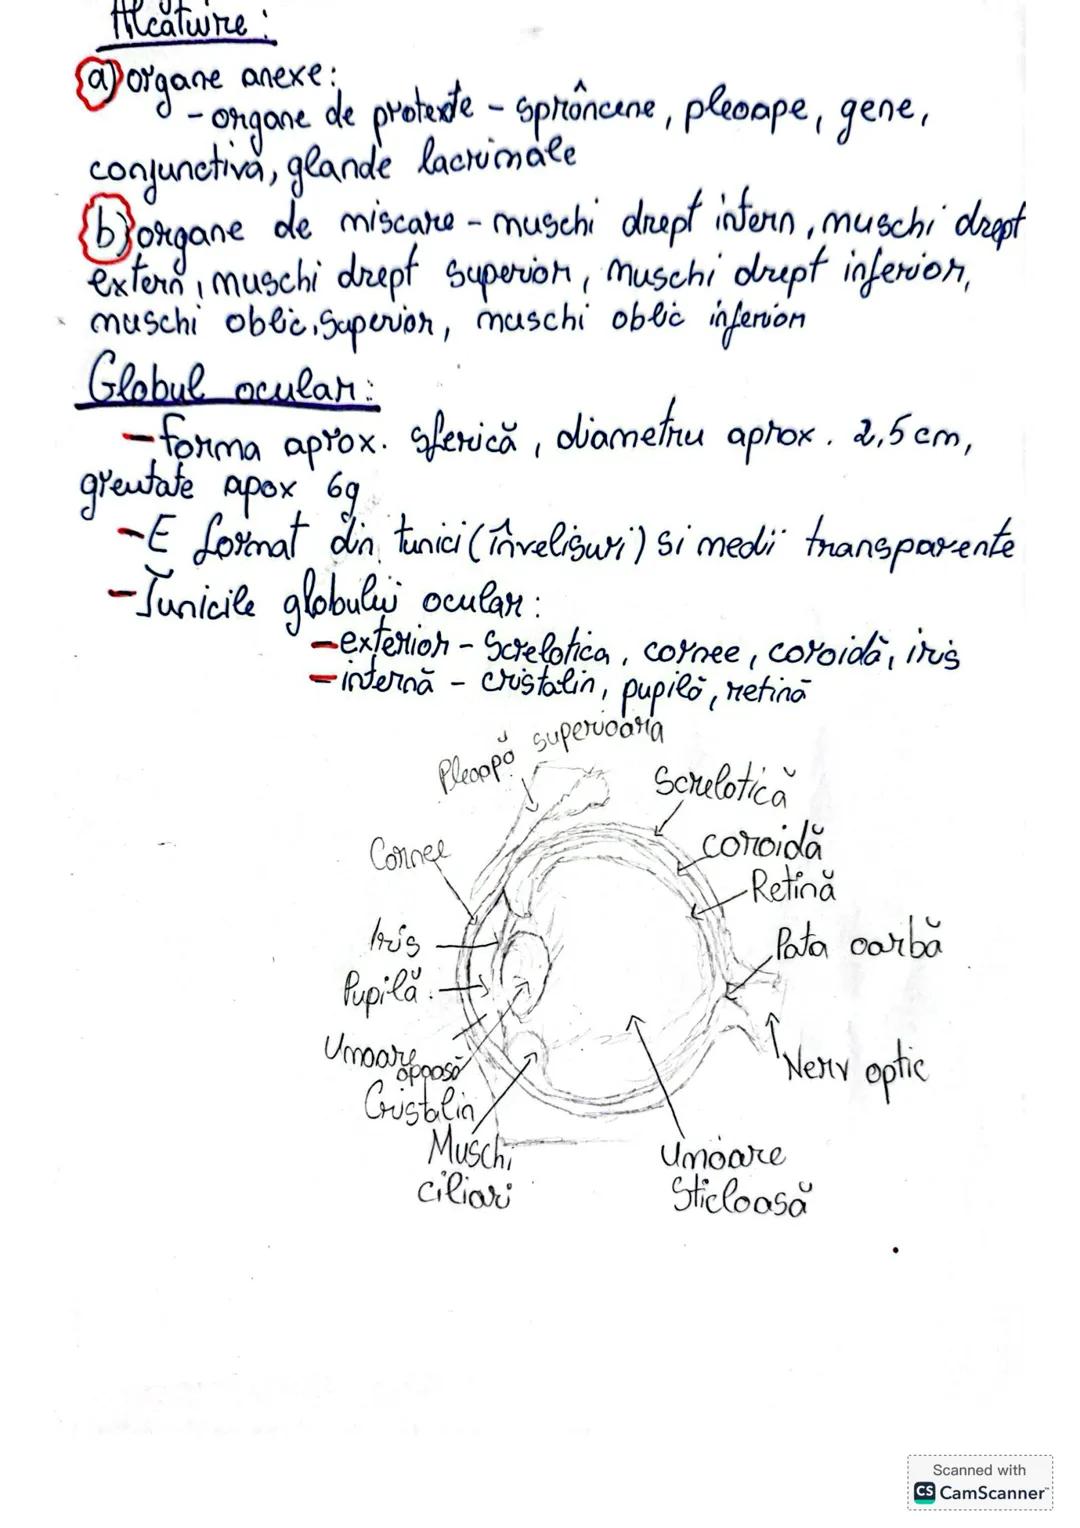 Alcătuire:
a) organe anexe:
- organe de protexte - sprâncene, pleoape, gene,
conjunctivă, glande lacrimale
b) organe de miscare - muschi drept intern, muschi drept
extern, muschi drept superior, muschi drept inferior,
muschi oblic superior, muschi oblic inferior
Globul ocular:
- forma aprox. sferică, diametru aprox. 2,5 cm,
greutate apox 6g
- E format din tunici (învelisuri) si medii transparente
- Tunicile globului ocular:
- exterior - Screlotica, cornee, coroidă, iris
- internă - cristalin, pupilă, retină
Pleoapă superioara
Screlotică
Cornee
coroidă
Retină
Iris
Pata oarbă
Pupilă
Umoare
apoasă
Nerv optic
Cristalin
Muschi
ciliari
Umoare
Sticloasă
Scanned with
CS CamScanner